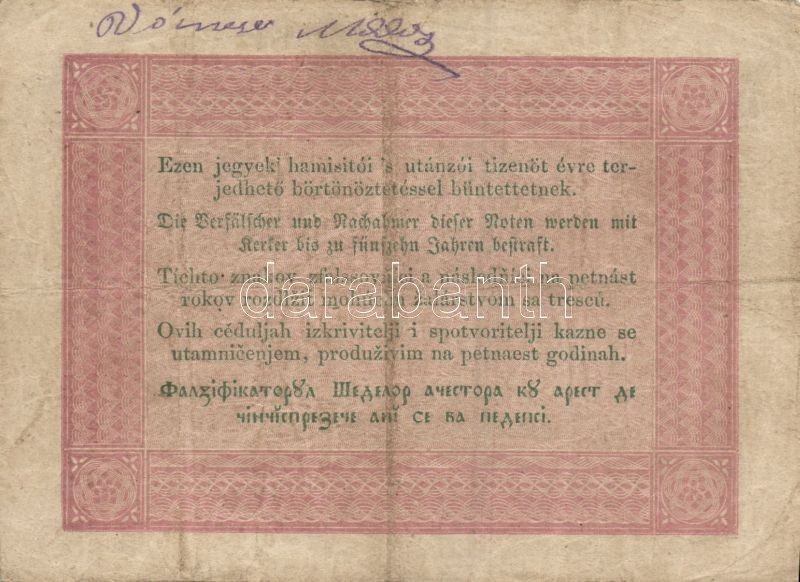 Ezen jegyek' hamisitói 's utánzói tizenöt évre ter-
jedhető börtönöztetéssel büntettetnek.
Die Verfälscher und Nachahmer dieser Noten werden mit
Kerker bis zu fünfzehn Jahren bestraft.
Tíchto znakov a na petnást
rokov žalárstvom sa trescú.
darabanth
Ovih céduljah izkrivitelji i spotvoritelji kazne se
utamničenjem, produživim na petnaest godinah.
Фалꙁіфікаторꙋл Шеделор ачестора кꙋ арест де
чінчіспреꙁече ані се ва педепсі.